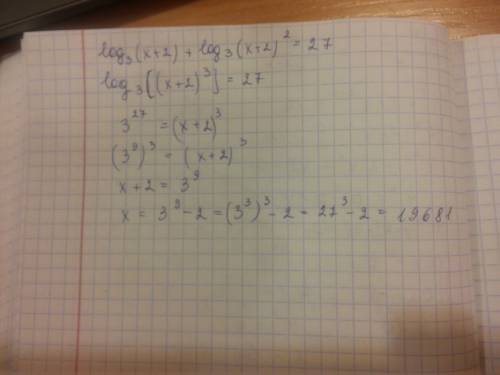 log₃(x+2) + log₃(x+2)² = 27
log₃[(x+2)³] = 27
3²⁷ = (x+2)³
(3⁹)³ = (x+2)³
x+2 = 3⁹
x = 3⁹ - 2 = (3³)³ - 2 = 27³ - 2 = 19681